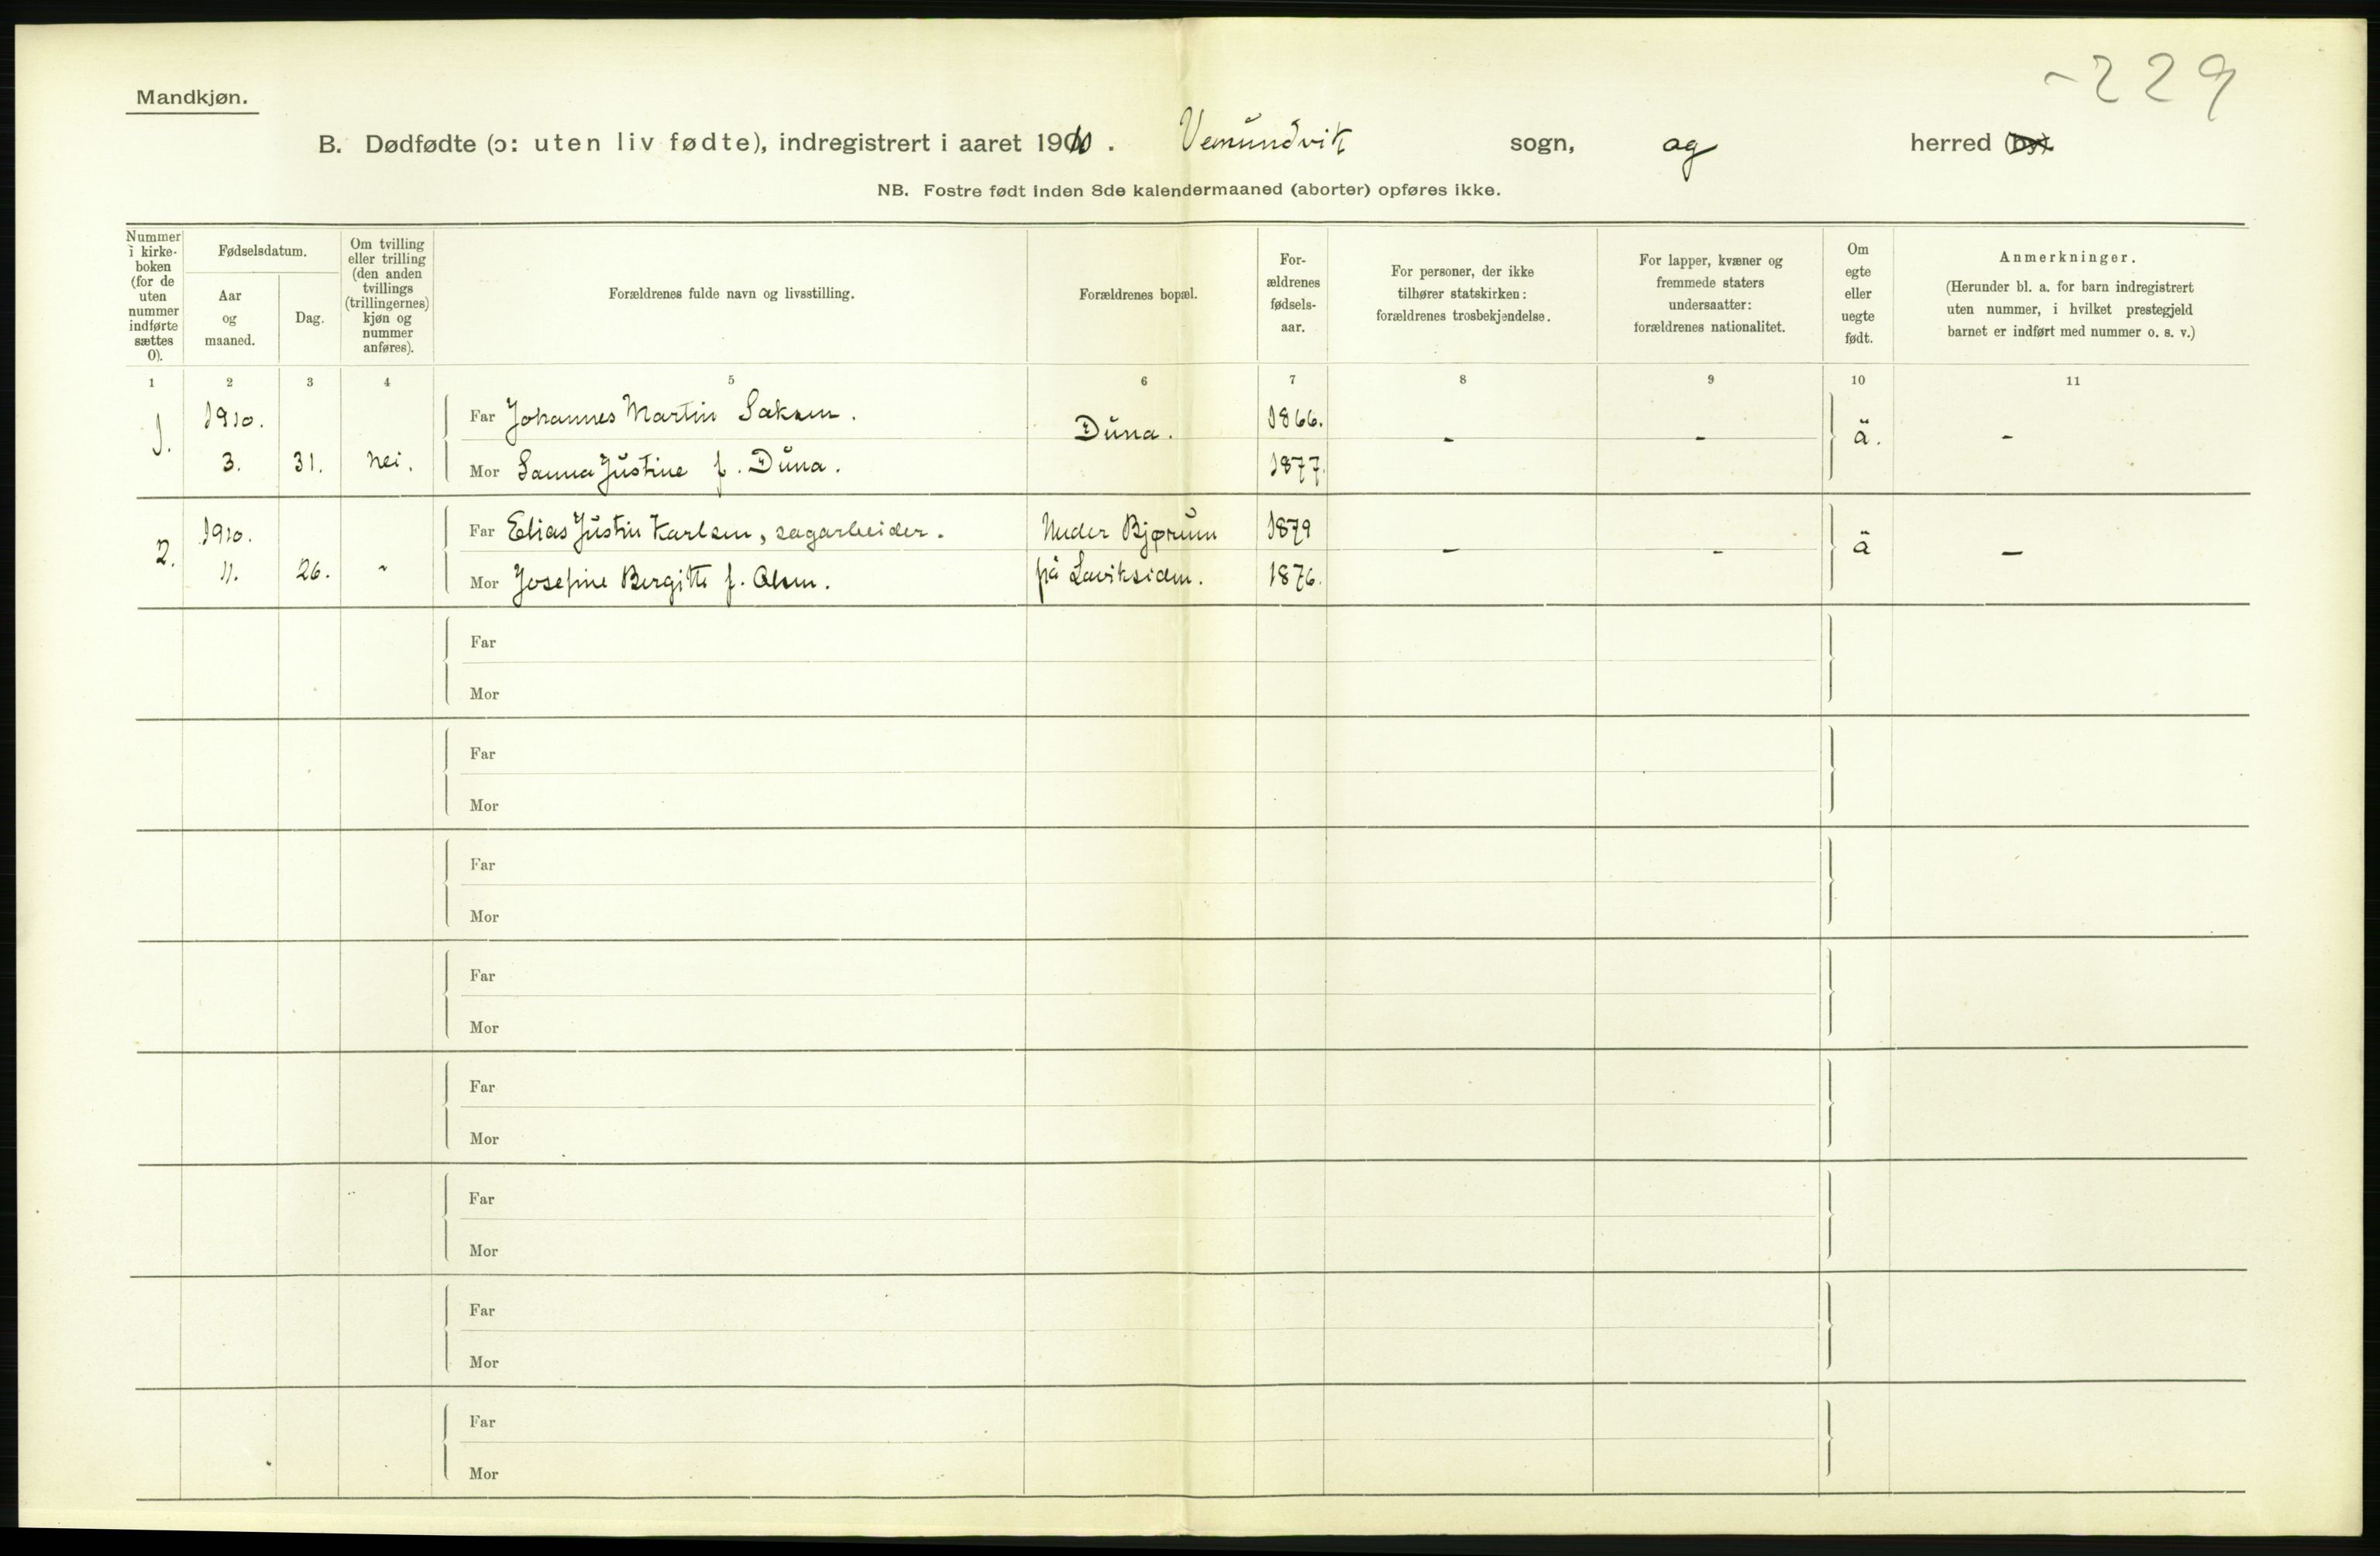 -229
Mandkjøn.
B. Dødfødte (ɔ: uten liv fødte), indregistrert i aaret 1910. Vemundvik sogn, og herred
NB. Fostre født inden 8de kalendermaaned (aborter) opføres ikke.
Nummer i kirke-boken (for de uten nummer indførte sættes 0).
Fødselsdatum.
Aar og maaned.
Dag.
Om tvilling eller trilling (den anden tvillings (trillingernes) kjøn og nummer anføres).
Forældrenes fulde navn og livsstilling.
Forældrenes bopæl.
For-ældrenes fødsels-aar.
For personer, der ikke tilhører statskirken: forældrenes trosbekjendelse.
For lapper, kvæner og fremmede staters undersaatter: forældrenes nationalitet.
Om egte eller uegte født.
Anmerkninger.
(Herunder bl. a. for barn indregistrert uten nummer, i hvilket prestegjeld barnet er indført med nummer o. s. v.)
1 2 3 4 5 6 7 8 9 10 11
1. 1910. Far Johannes Martin Saksen. Dŭna. 1866. - - ä. -
3. 31. nei. Mor Sanna Jŭstine f. Dŭna. 1877.
2. 1910. Far Elias Jŭstin Karlsen, sagarbeider. Under Bjørŭm 1879 - - ä -
11. 26. " Mor Josefine Bergitte f. Olsen. på Laviksiden. 1876.
Far
Mor
Far
Mor
Far
Mor
Far
Mor
Far
Mor
Far
Mor
Far
Mor
Far
Mor